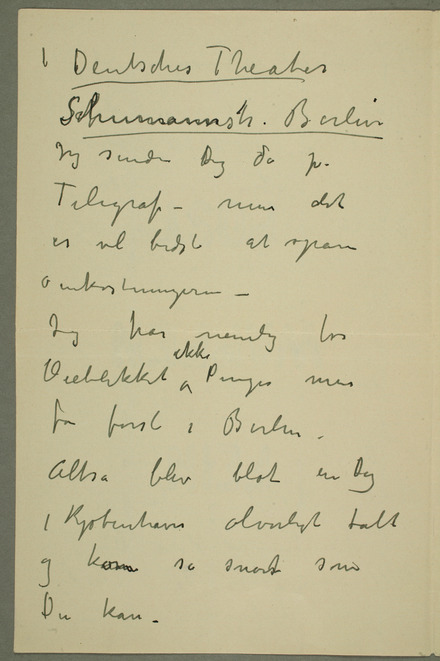 i Deutsches Theater
Schumannstr. Berlin
Jeg sender Dig da pr.
Telegraf – men det
er vel bedst at spare
omkostningerne –
Jeg har nemlig for
Øieblikket ikke Penge men
før først i Berlin.
Altsa blev blot en Dag
i Kjøbenhavn alvorligt talt
og kom så snart som
Du kan.